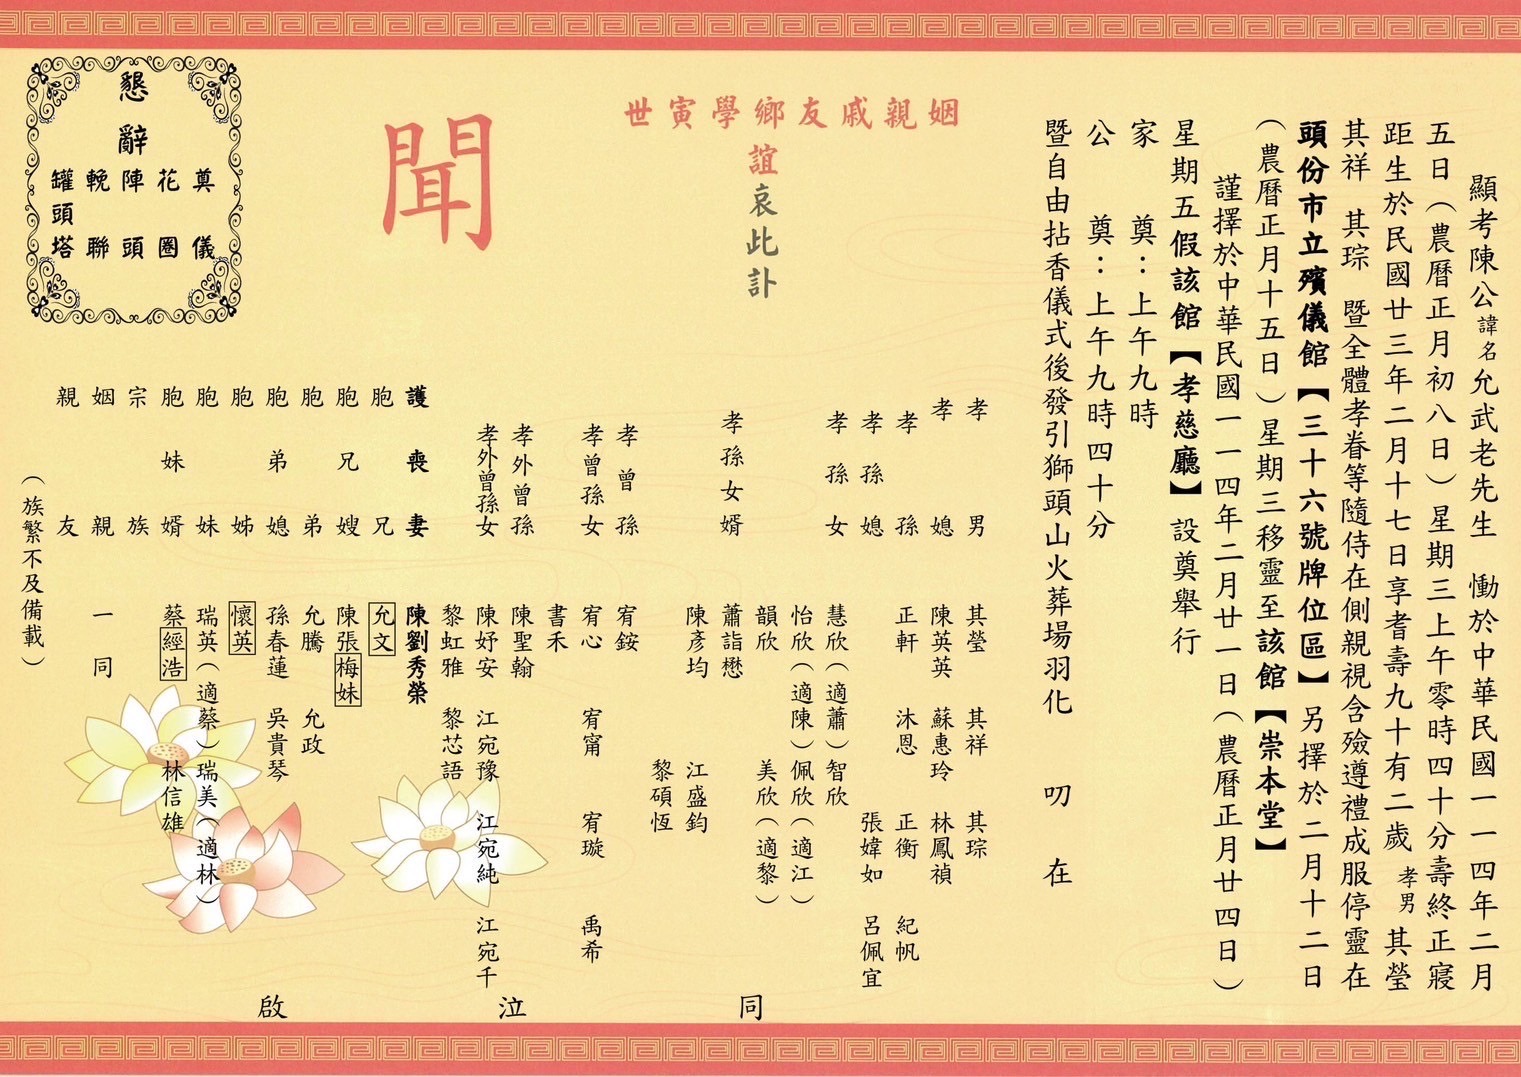 顯考陳公諱名允武老先生 慟於中華民國一一四年二月
五日(農曆正月初八日)星期三上午零時四十分壽終正寢
距生於民國廿三年二月十七日享耆壽九十有二歲 孝男 其瑩
其祥 其琮 暨全體孝眷等隨侍在側親視含殮遵禮成服停靈在
頭份市立殯儀館【三十六號牌位區】另擇於二月十二日
(農曆正月十五日)星期三移靈至該館【崇本堂】
謹擇於中華民國一一四年二月廿一日(農曆正月廿四日)
星期五假該館【孝慈廳】設奠舉行
家 奠:上午九時
公 奠:上午九時四十分
暨自由拈香儀式後發引獅頭山火葬場羽化 叨 在
姻親戚友鄉學寅世
誼哀此訃
聞
孝男 其瑩 其祥 其琮
孝媳 陳英英 蘇惠玲 林鳳禎
孝孫 正軒 沐恩 正衡 紀帆
孝孫媳 張媁如 呂佩宜
孝孫女 慧欣(適蕭)智欣
怡欣(適陳)佩欣(適江)
韻欣 美欣(適黎)
孝孫女婿 蕭詣懋
陳彥均 江盛鈞
黎碩恆
孝曾孫 宥銨
孝曾孫女 宥心 宥甯 宥璇 禹希
書禾
孝外曾孫 陳聖翰
孝外曾孫女 陳妤安 江宛豫 江宛純 江宛千
黎虹雅 黎芯語
護喪妻 陳劉秀榮
胞兄 允文
胞兄嫂 陳張梅妹
胞弟 允騰 允政
胞弟媳 孫春蓮 吳貴琴
胞姊 懷英
胞妹 瑞英(適蔡)瑞美(適林)
胞妹婿 蔡經浩 林信雄
宗族
姻親 一同
親友
(族繁不及備載)
同 泣 啟
懇辭
奠儀
花圈
陣頭
輓聯
罐頭塔